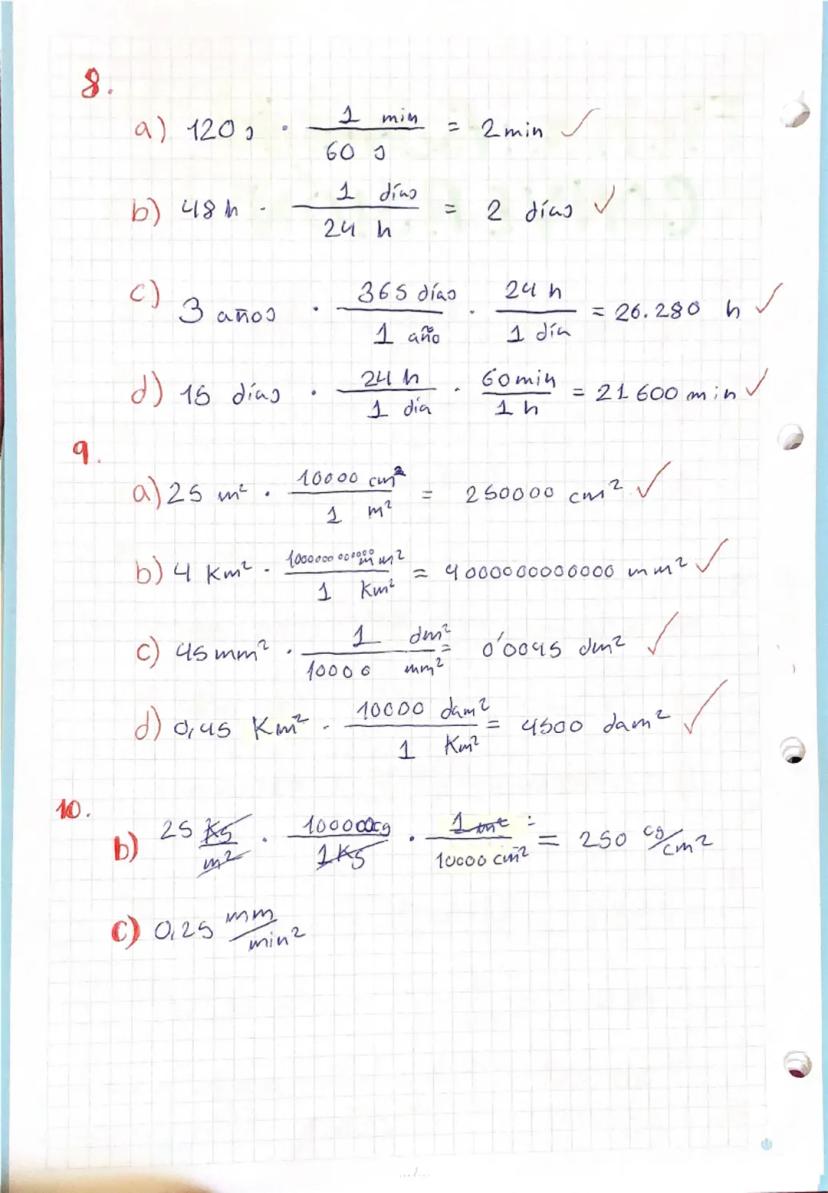 8.
a) 120 s · 1 min / 60 s = 2 min ✓
b) 48 h · 1 días / 24 h = 2 días ✓
c) 3 años · 365 días / 1 año · 24 h / 1 día = 26.280 h ✓
d) 15 días · 24 h / 1 día · 60 min / 1 h = 21600 min ✓
9.
a) 25 m² · 10000 cm² / 1 m² = 250000 cm² ✓
b) 4 Km² · 1000000000000 mm² / 1 Km² = 4000000000000 mm² ✓
c) 45 mm² · 1 dm² / 10000 mm² = 0'0045 dm² ✓
d) 0,45 Km² · 10000 dam² / 1 Km² = 4500 dam² ✓
10.
b) 25 Kg/m² · 100000cg / 1 Kg · 1 m² / 10000 cm² = 250 cg/cm²
c) 0,25 mm/min²